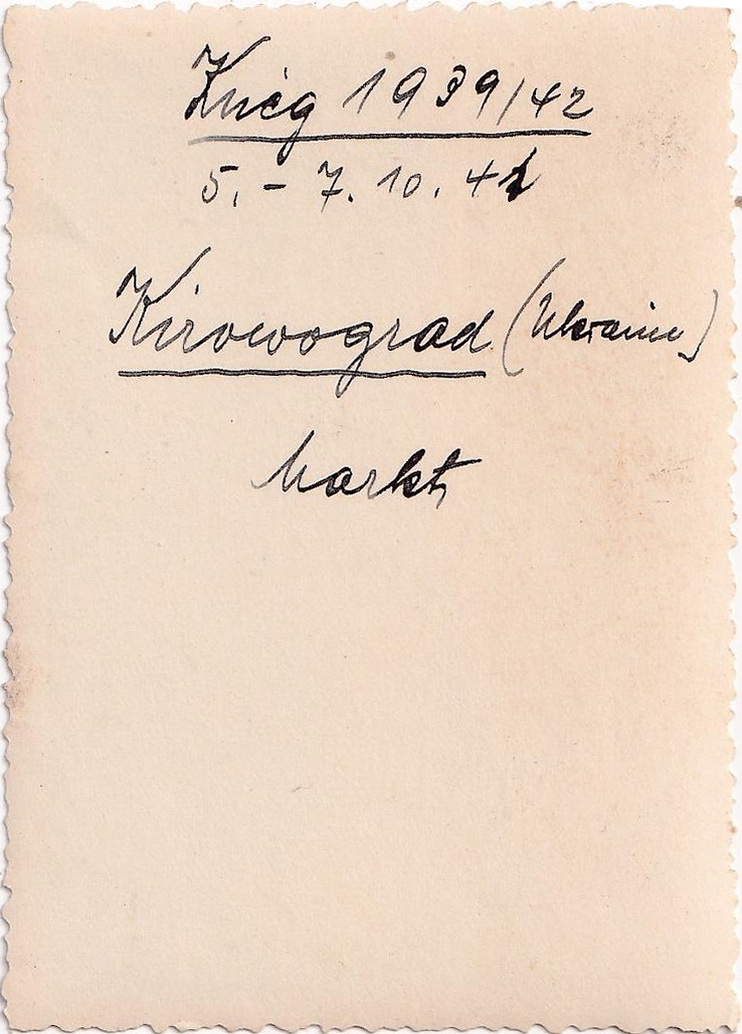 Krieg 1939/42
5. - 7. 10. 41
Kirowograd (Ukraine)
Markt